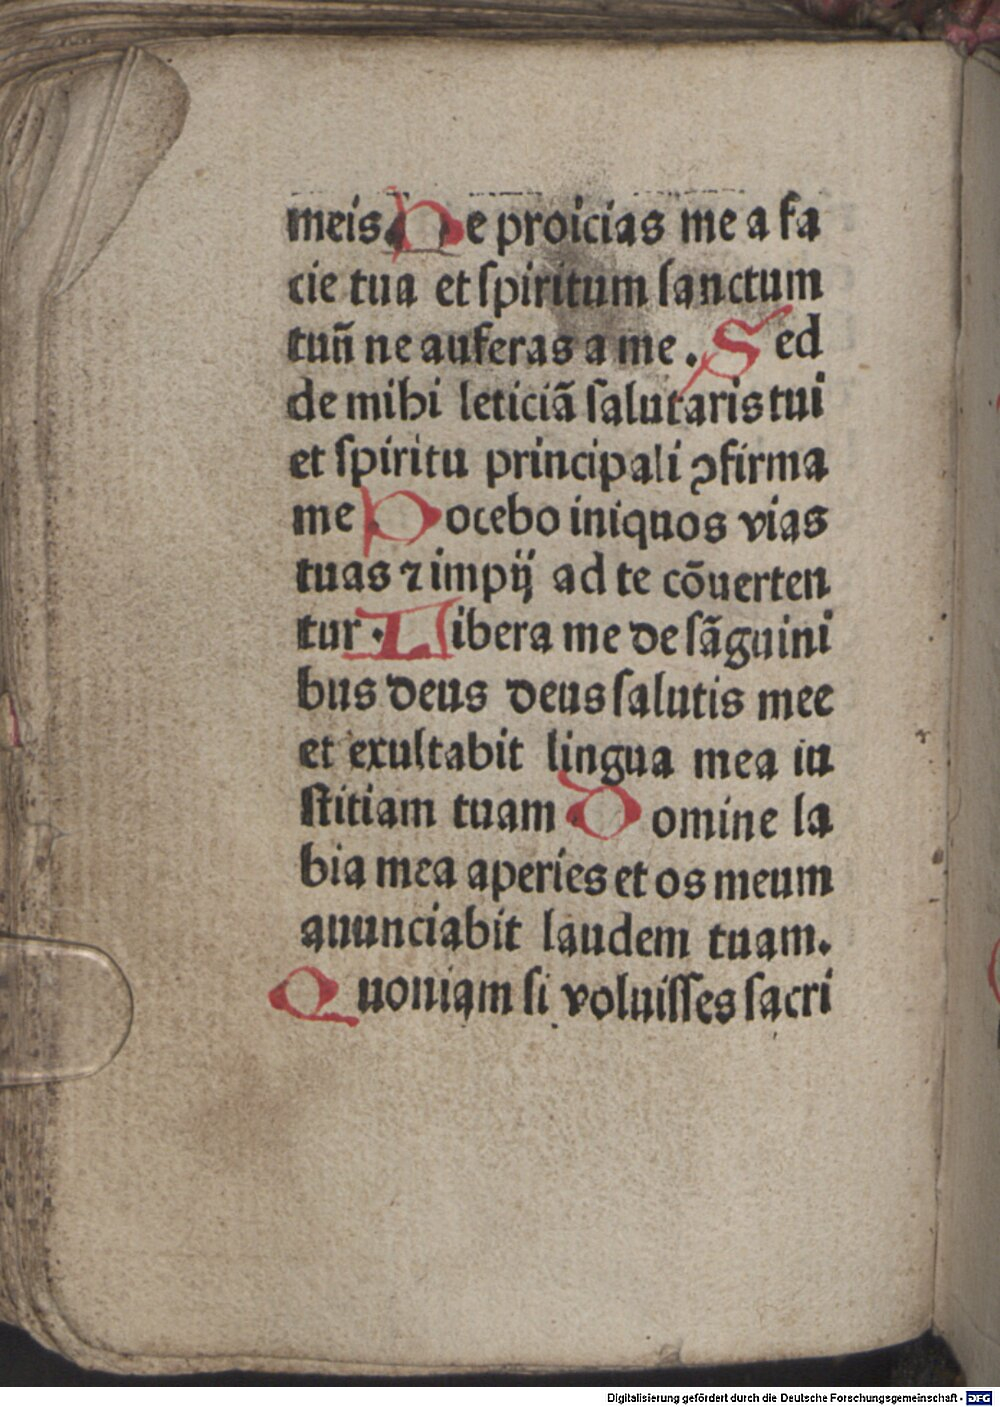 meis Ne proicias me a fa
cie tua et ſpiritum ſanctum
tuū ne auferas a me. Sed
de mihi leticiā ſalutaris tui
et ſpiritu principali ꝯfirma
me Docebo iniquos vias
tuas ⁊ impij ad te cōuerten
tur. Libera me de ſāguini
bus deus deus ſalutis mee
et exultabit lingua mea iu
ſtitiam tuam Domine la
bia mea aperies et os meum
anunciabit laudem tuam.
Quoniam ſi voluiſſes ſacri
Digitalisierung gefördert durch die Deutsche Forschungsgemeinschaft - DFG